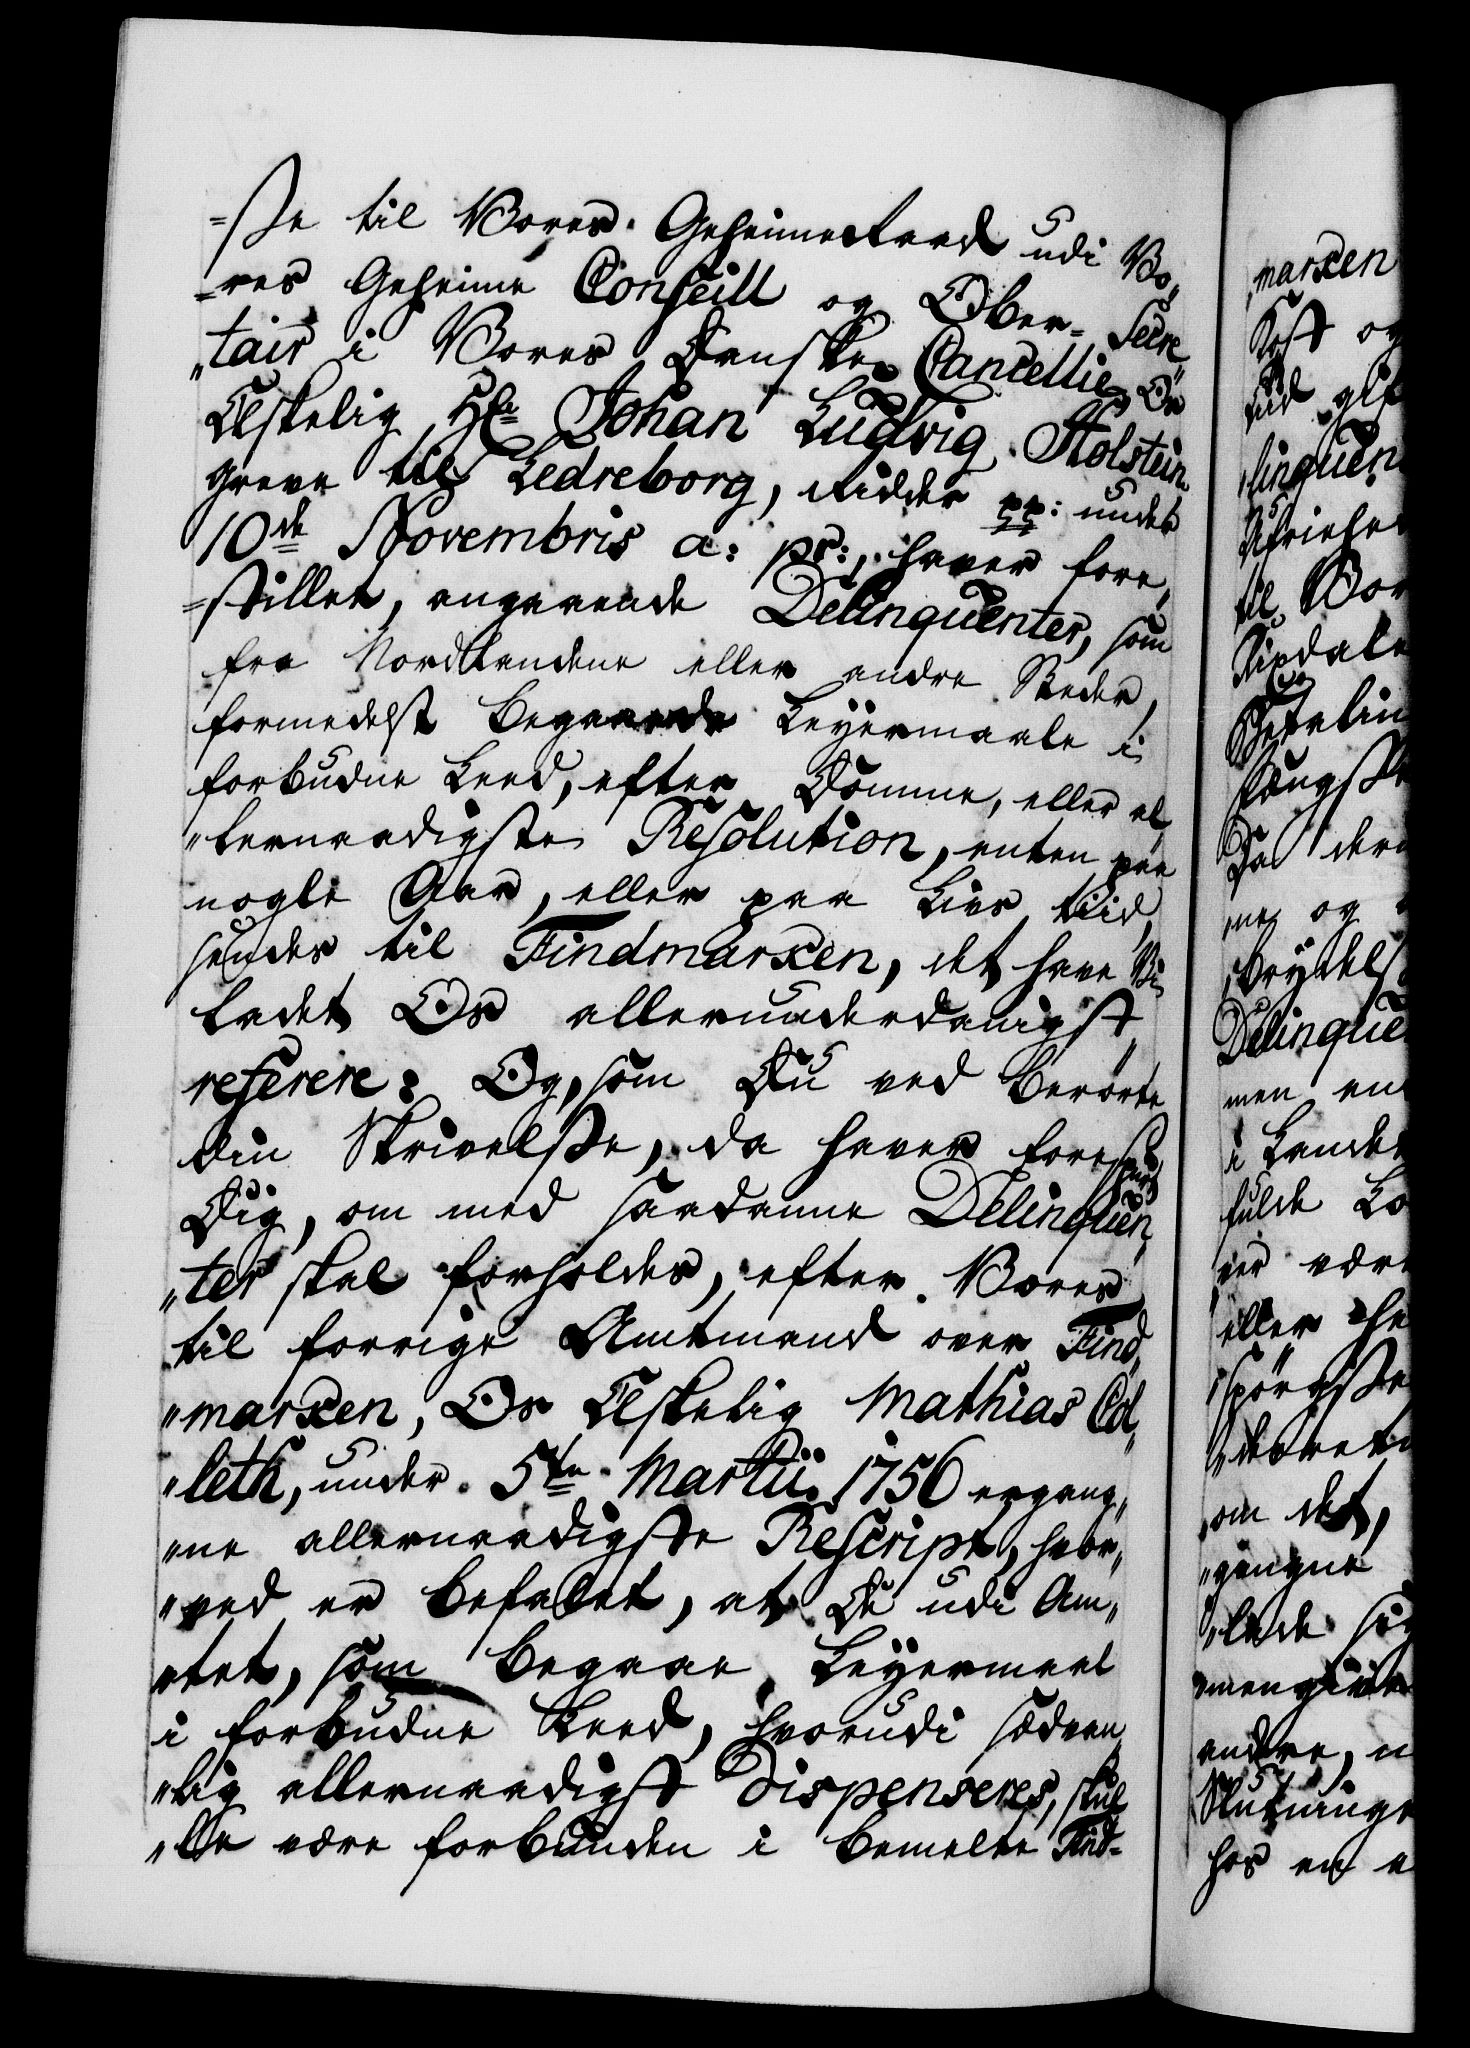 =ße til Vores Geheimeraad udi Vo„
=res Geheime Conseill og Ober-Secre„
„tair i Vores Danske Cancellie, Os
Elskelig Hr Johan Ludvig Holstein
Greve til Ledreborg, Ridder pp: under
10de Novembris a: pr:, haver fore„
=stillet, angaaende Delinquenter, som
fra Nordlandene eller andre Steder,
formedelst begaaede Leyermaale i
forbudne Leed, efter Domme, eller al„
„lernaadigste Resolution, enten paa
nogle Aar, eller paa Livs tiid,
sendes til Findmarken, det have Vi
ladet Os allerunderdanigst
referere: Og, som Du ved berørte
din Skrivelße, da haver forespurt
Dig, om med saadanne Delinquen„
„ter skal forholdes, efter Vores
til forrige Amtmand over Find„
„marken, Os Elskelig Mathias Col„
„leth, under 5te Martii 1756 ergang„
„ne allernaadigste Rescript, hvor„
„ved er befalet, at De udi Am„
„tet, som begaae Leyermaal
i forbudne Leed, hvorudi sædvan„
„lig allernaadigst dispenseres, skul„
„le være forbunden i bemelte Find=
marken
Kost og
„linquen
til Vor
Da der
„me og
Delinque
men en
i Landet
fulde Lo
„er være
eller he
om det,
„gangne
andre, n
Slutninge
hos en a